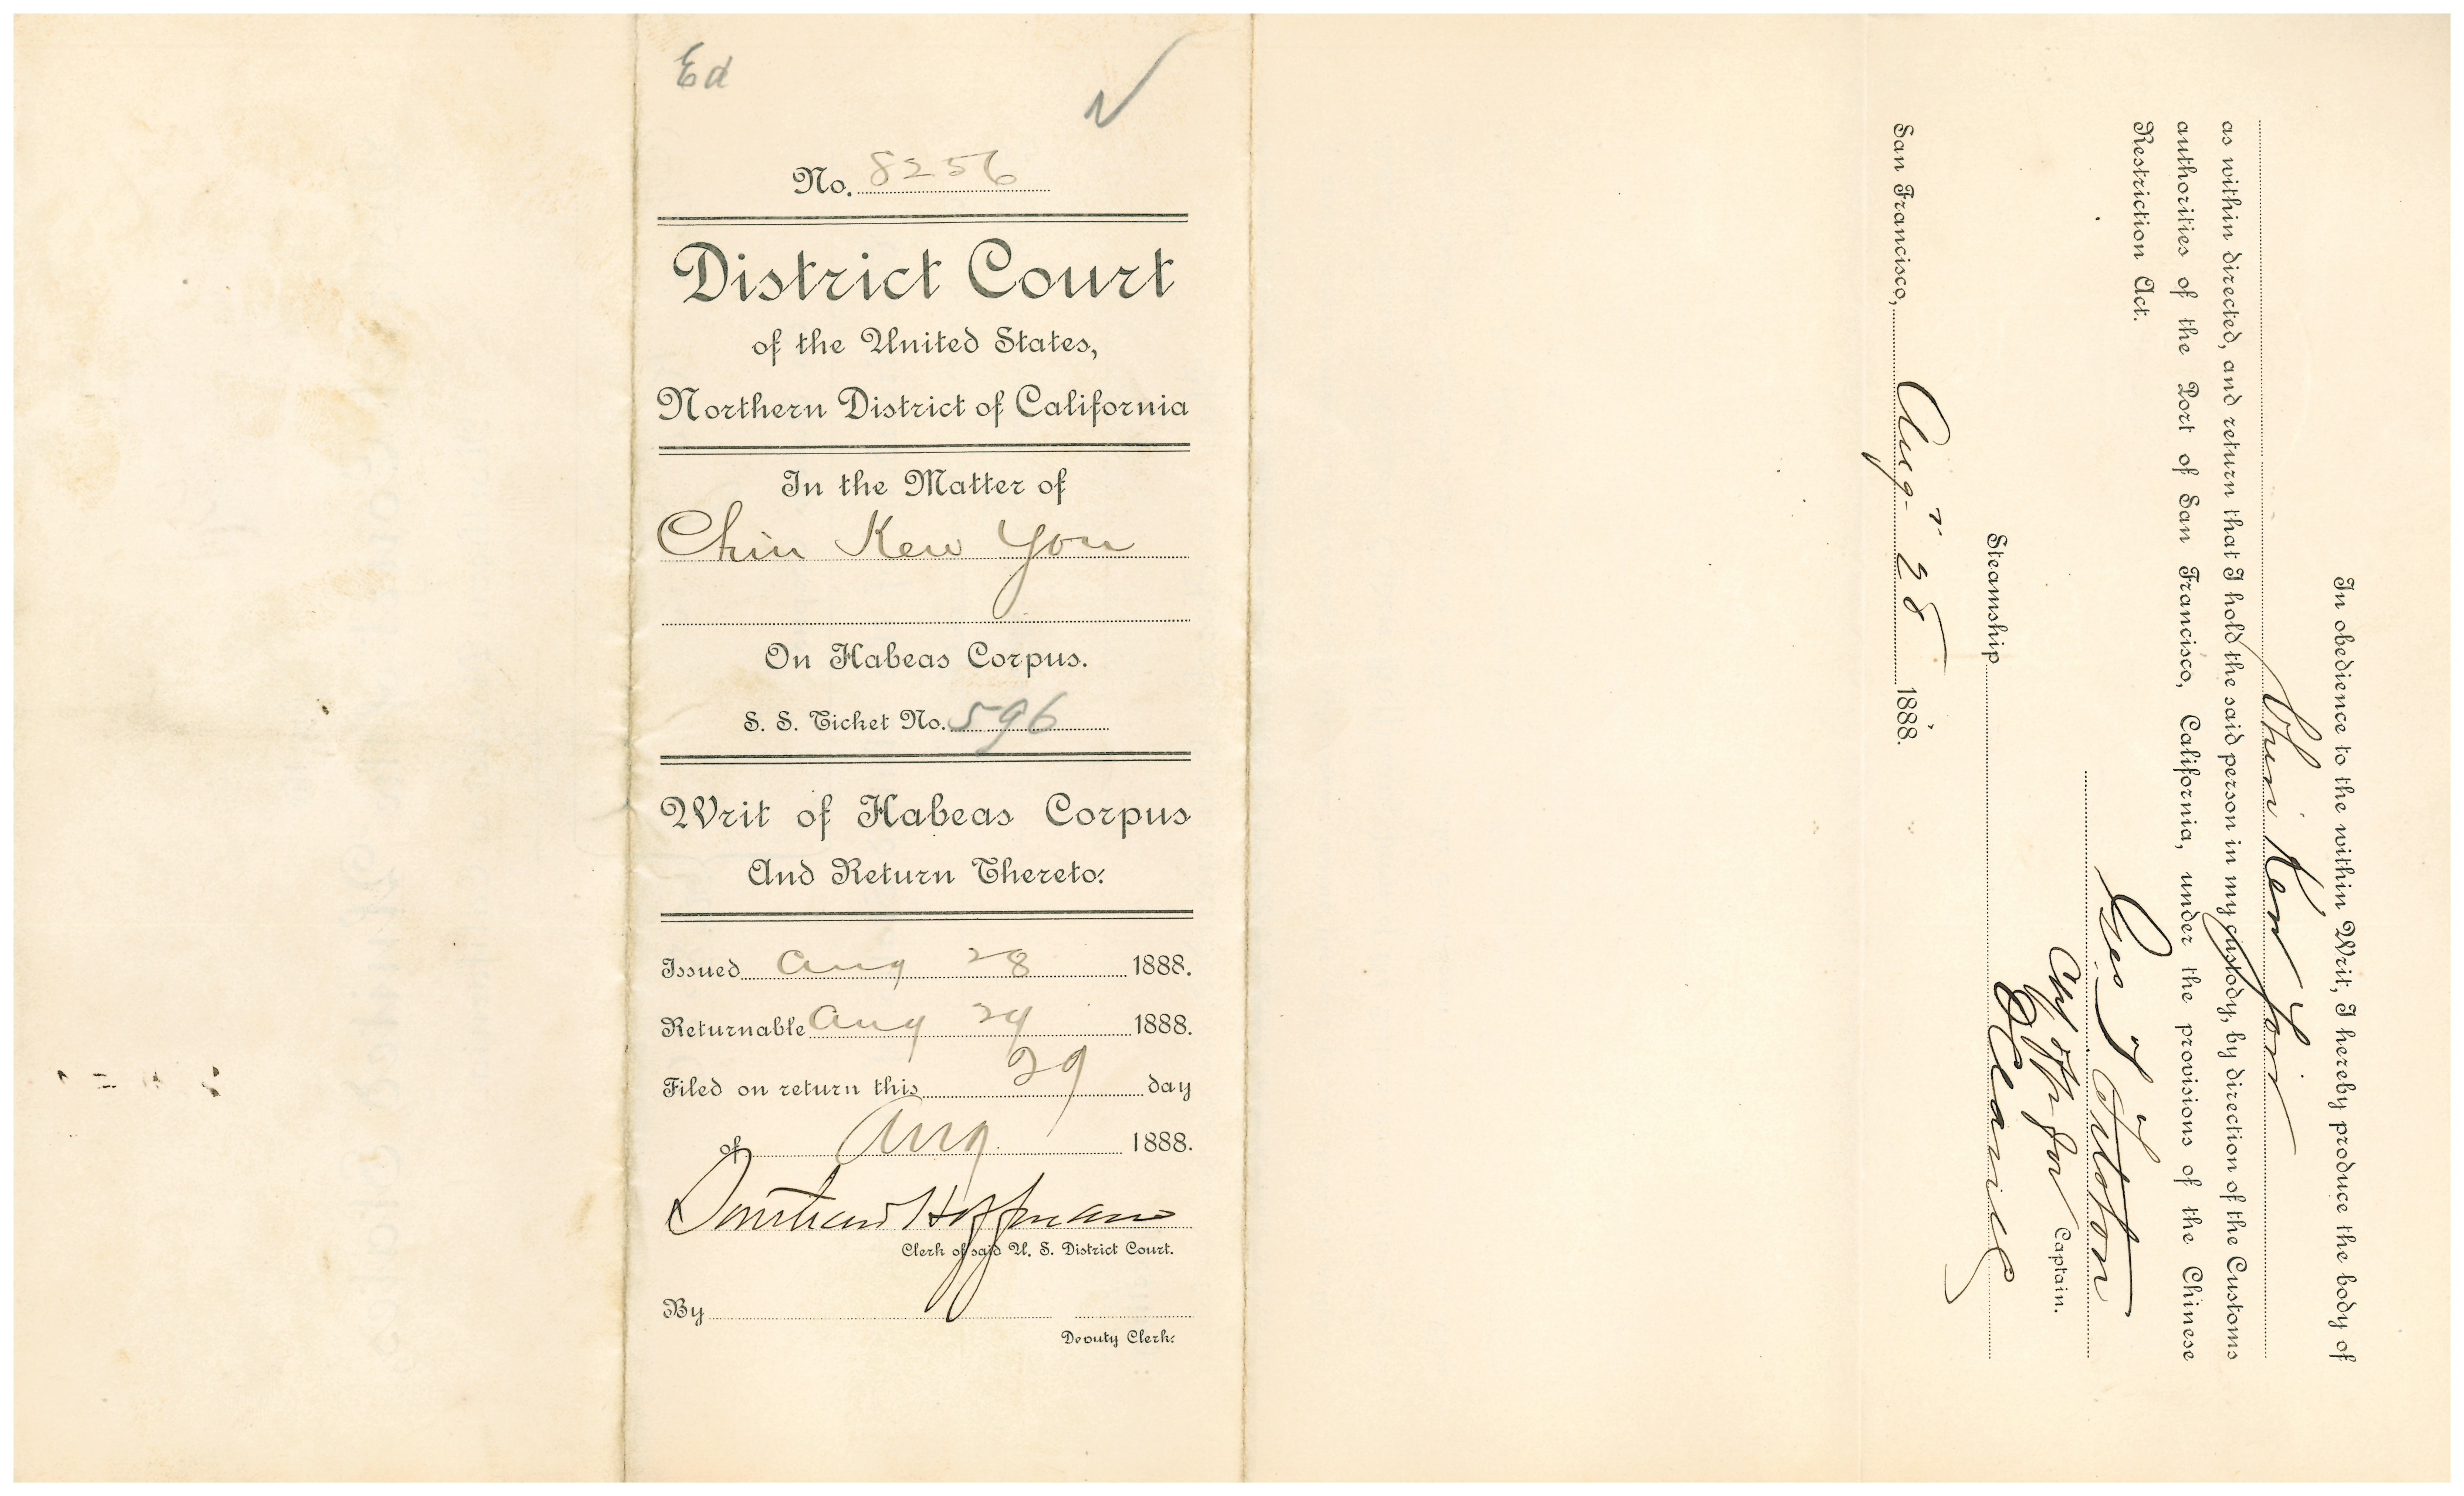 Ed
No. 8256
District Court
of the United States,
Northern District of California
In the Matter of
Chin Kew You
On Habeas Corpus.
S. S. Ticket No. 596
Writ of Habeas Corpus
And Return Thereto.
Issued Aug 28 1888.
Returnable Aug 29 1888.
Filed on return this 29 day
of Aug 1888.
Southard Hoffman
Clerk of said U. S. District Court.
By
Deputy Clerk.
In obedience to the within Writ, I hereby produce the body of
Chin Kew You
as within directed, and return that I hold the said person in my custody, by direction of the Customs
authorities of the Port of San Francisco, California, under the provisions of the Chinese
Restriction Act.
Geo
Captain.
Steamship
San Francisco, Aug 28 1888.